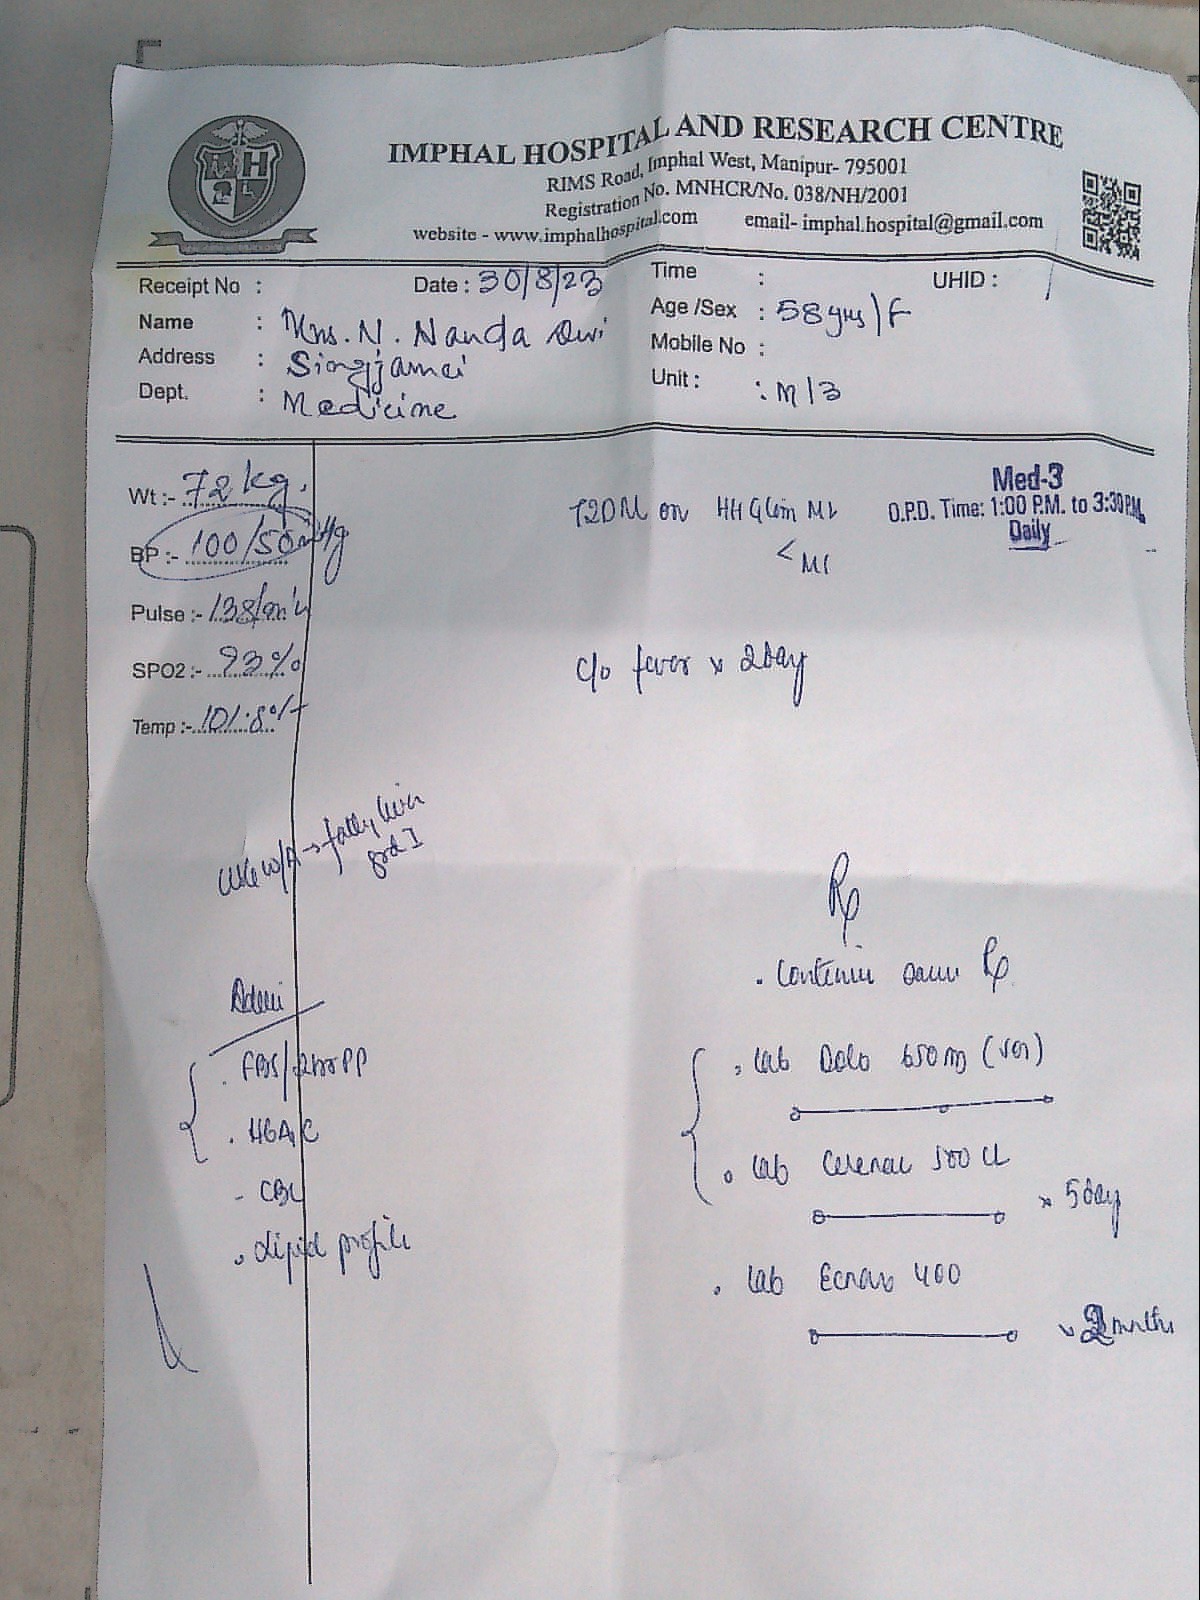 IMPHAL HOSPITAL AND RESEARCH CENTRE
RIMS Road, Imphal West, Manipur- 795001
Registration No. MNHCR/No. 038/NH/2001
website - www.imphalhospital.com email- imphal.hospital@gmail.com
Receipt No : Date : 30/8/23 Time : UHID :
Name : Mrs. N. Nanda Devi Age /Sex : 58 yrs/F
Address : Singjamei Mobile No :
Dept. : Medicine Unit : : M/3
Wt :- 72 kg.
Med-3
O.P.D. Time: 1:00 P.M. to 3:30 P.M.
Daily
T2DM on M2
< M1
BP :- 100/50 mmHg
Pulse :- 138/min
SPO2 :- 93%
c/o fever x 2day
Temp :- 101.8°F
W/A → fatty liver
grd I
Rx
. continue same Rx
. FBS/2hrPP
. Tab Dolo 650 mg
. HbA1C
. Tab 500
x 5day
- CBC
. Lipid profile
. Tab 400
x 2 months